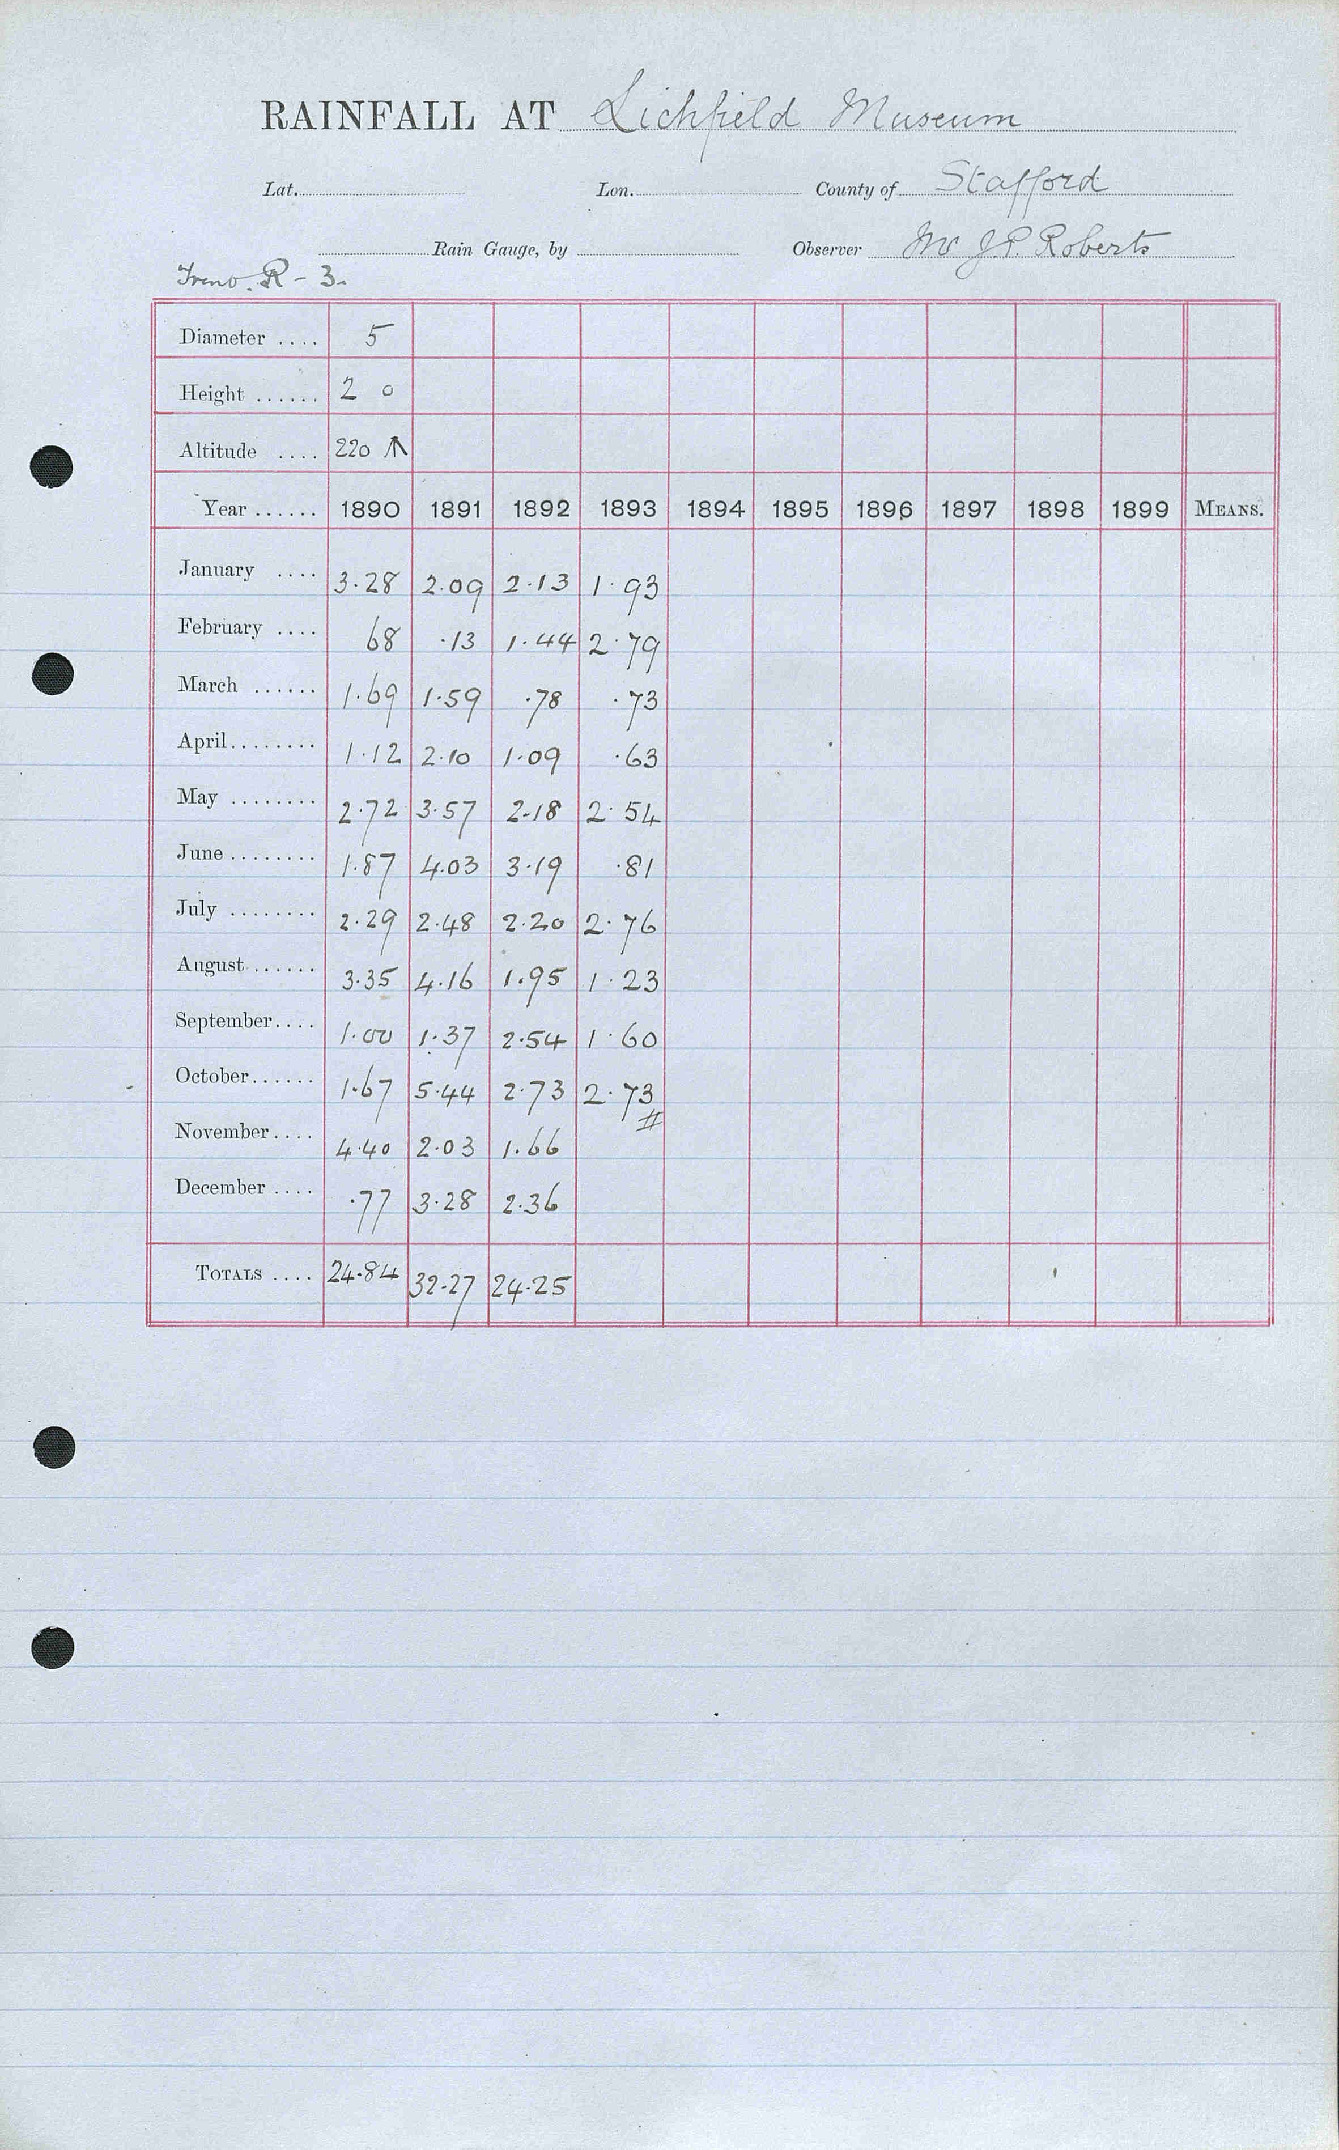 RAINFALL AT Lichfield Museum
Lat. Lon. County of Stafford
Rain Gauge, by Observer Mr J.P. Roberts
R - 3.
Diameter .... 5
Height ...... 2 0
Altitude .... 220
Year ...... 1890 1891 1892 1893 1894 1895 1896 1897 1898 1899 MEANS.
January .... 3.28 2.09 2.13 1.93
February .... 68 .13 1.44 2.79
March ...... 1.69 1.59 .78 .73
April........ 1.12 2.10 1.09 .63
May ........ 2.72 3.57 2.18 2.54
June........ 1.87 4.03 3.19 .81
July ........ 2.29 2.48 2.20 2.76
August....... 3.35 4.16 1.95 1.23
September.... 1.00 1.37 2.54 1.60
October...... 1.67 5.44 2.73 2.73
November.... 4.40 2.03 1.66
December .... .77 3.28 2.36
TOTALS .... 24.84 32.27 24.25